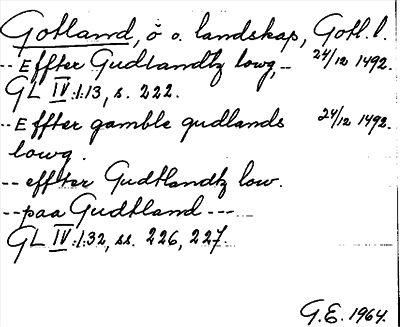 Gotland, ö o. landskap, Gotl. l.
-- Effter Gudlandtz lowg, -- 24/12 1492.
GL IV:1:13, s. 222.
-- Effter gamble gudlands 24/12 1492.
lowg.
-- effter Gudtlandtz low.
-- paa Gudtland ---
GL IV:1:32, ss. 226, 227.
G.E. 1964.